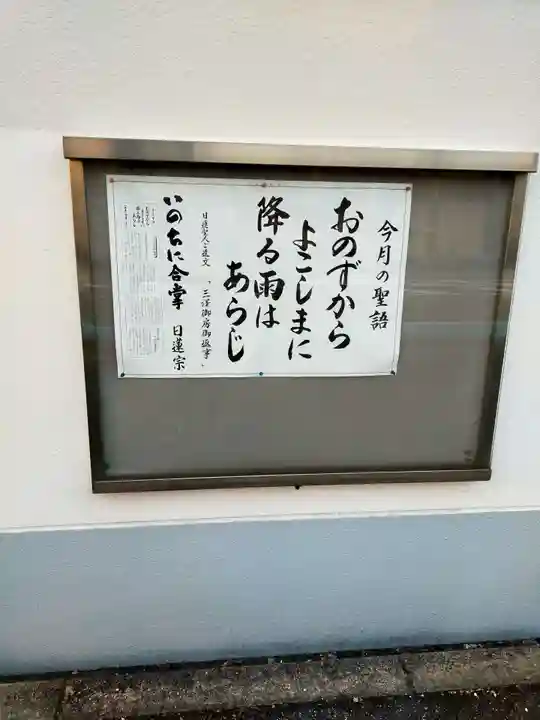 今月の聖語
おのずから
よこしまに
降る雨は
あらじ
日蓮聖人ご遺文 「三澤御房御返事」
いのちに合掌 日蓮宗